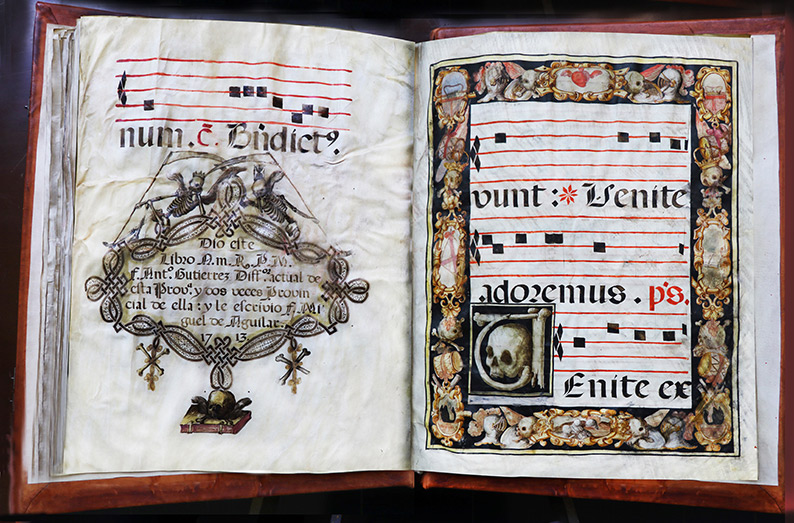 num. c̄. Bn̄dict⁹.
Dio este
Libro N. m. R. P. M.
F. Antº. Gutierrez Diffºʳ actual de
esta Provᵃ. y dos veces Provin
cial de ella: y le escrivio F. Mi
guel de Aguilar.
1713
vunt : Venite
adoremus. ps.
VEnite ex